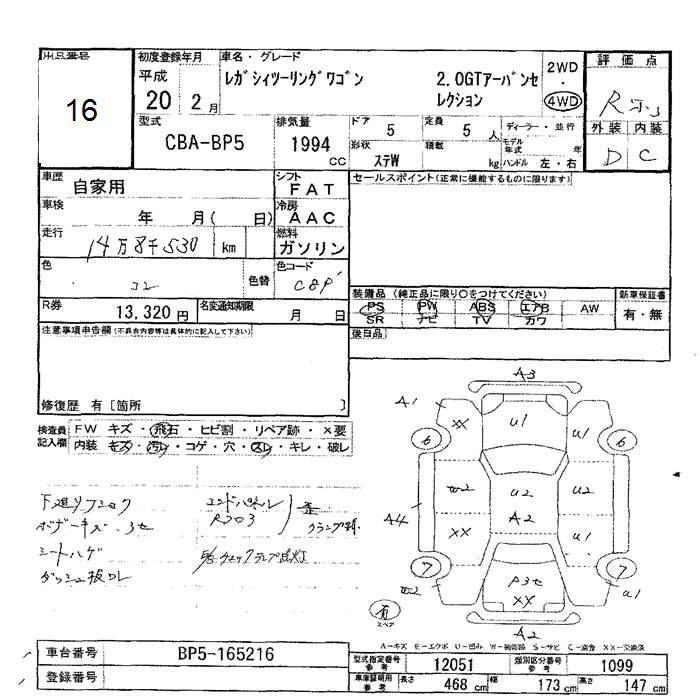 出品番号 16
初度登録年月 平成 20 2月
車名・グレード レガシィツーリングワゴン 2.0GTアーバンセレクション
2WD・4WD
評価点 R
外装 内装
D C
型式 CBA-BP5
排気量 1994 CC
ドア 5 定員 5人 ディーラー・並行
形状 ステW 積載 kg モデル年式 年
ハンドル 左・右
車歴 自家用
シフト FAT
セールスポイント(正常に機能するものに限ります)
車検 年 月( 日)
冷房 AAC
走行 14万8千530 km
燃料 ガソリン
色 コン 色替
色コード C8P
装備品(純正品に限り○をつけてください) 新車保証書
PS PW ABS エアB AW
SR ナビ TV カワ
有・無
R券 13,320円 名変通知期限 月 日
後日品)
注意事項申告欄(不具合内容等は具体的に記入して下さい)
修復歴 有〔箇所 〕
検査員記入欄 FW キズ・飛石・ヒビ割・リペア跡・×要
内装 キズ・汚レ・コゲ・穴・スレ・キレ・破レ
シートハゲ
エンドパネル
A3
A1 XX U1 U1
6 6
W2 U2 U2
A4 A2
XX U1
7 7
W2 XX U1
有 スペア
A2
A-キズ E-エクボ U-凹み W-補修跡 S-サビ C-腐食 XX-交換済
車台番号 BP5-165216
登録番号
型式指定番号 参考 12051 類別区分番号 参考 1099
車庫証明用 参考 長さ 468 cm 幅 173 cm 高さ 147 cm